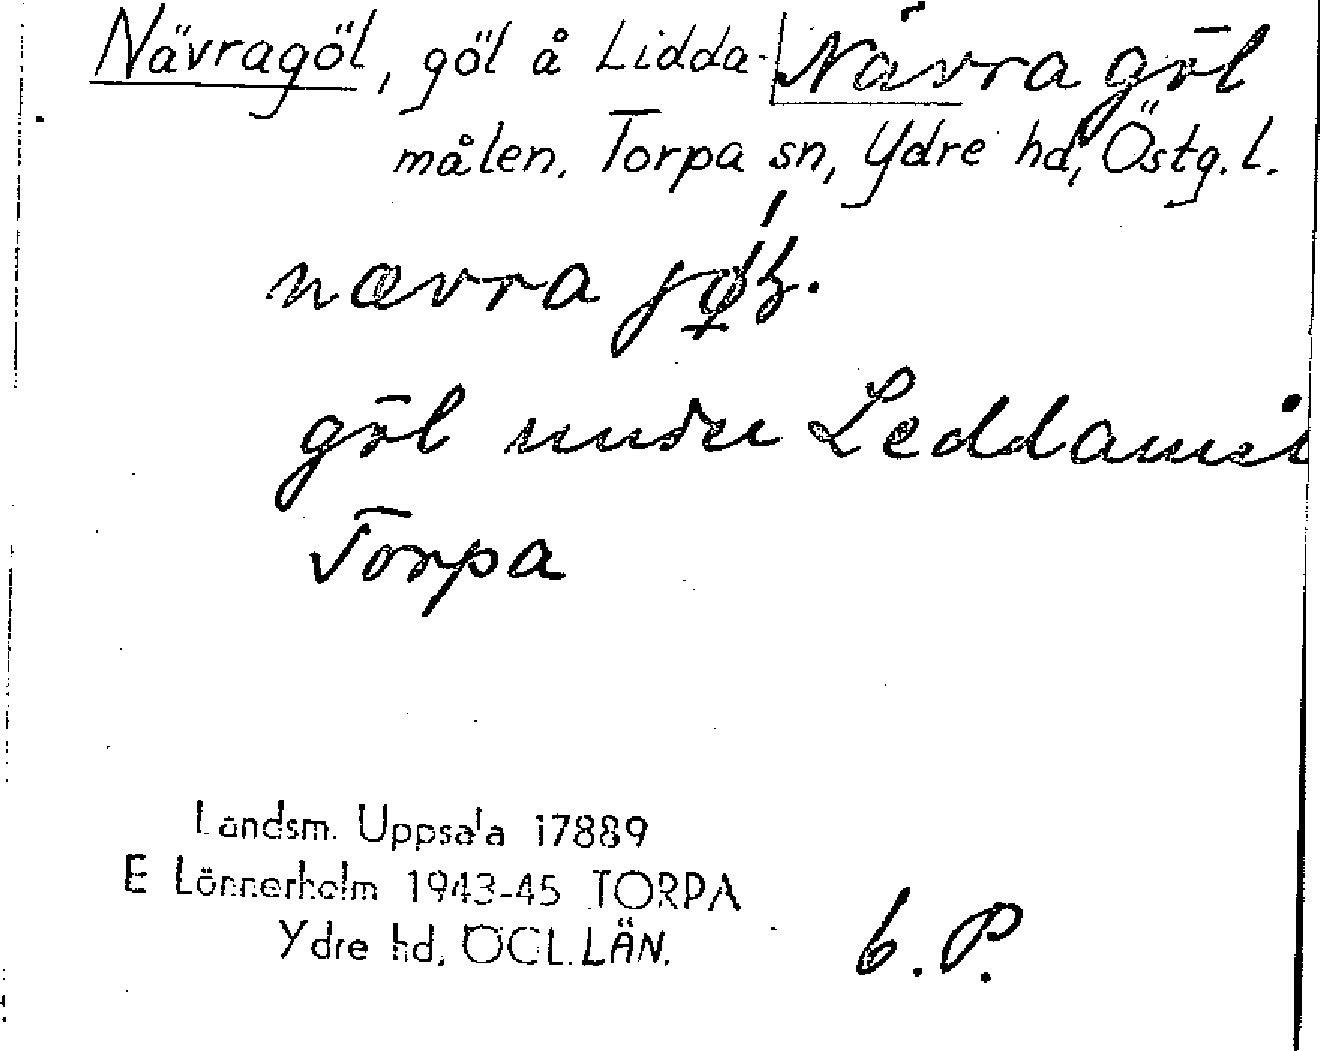 Nävragöl, göl å Lidda- Nävra göl
målen. Torpa sn, Ydre hd, Östg. l.
nævra
göl under
Torpa
Landsm. Uppsala 17889
E Lönnerholm 1943-45 TORPA
Ydre hd. ÖGL. LÄN.
6. P.